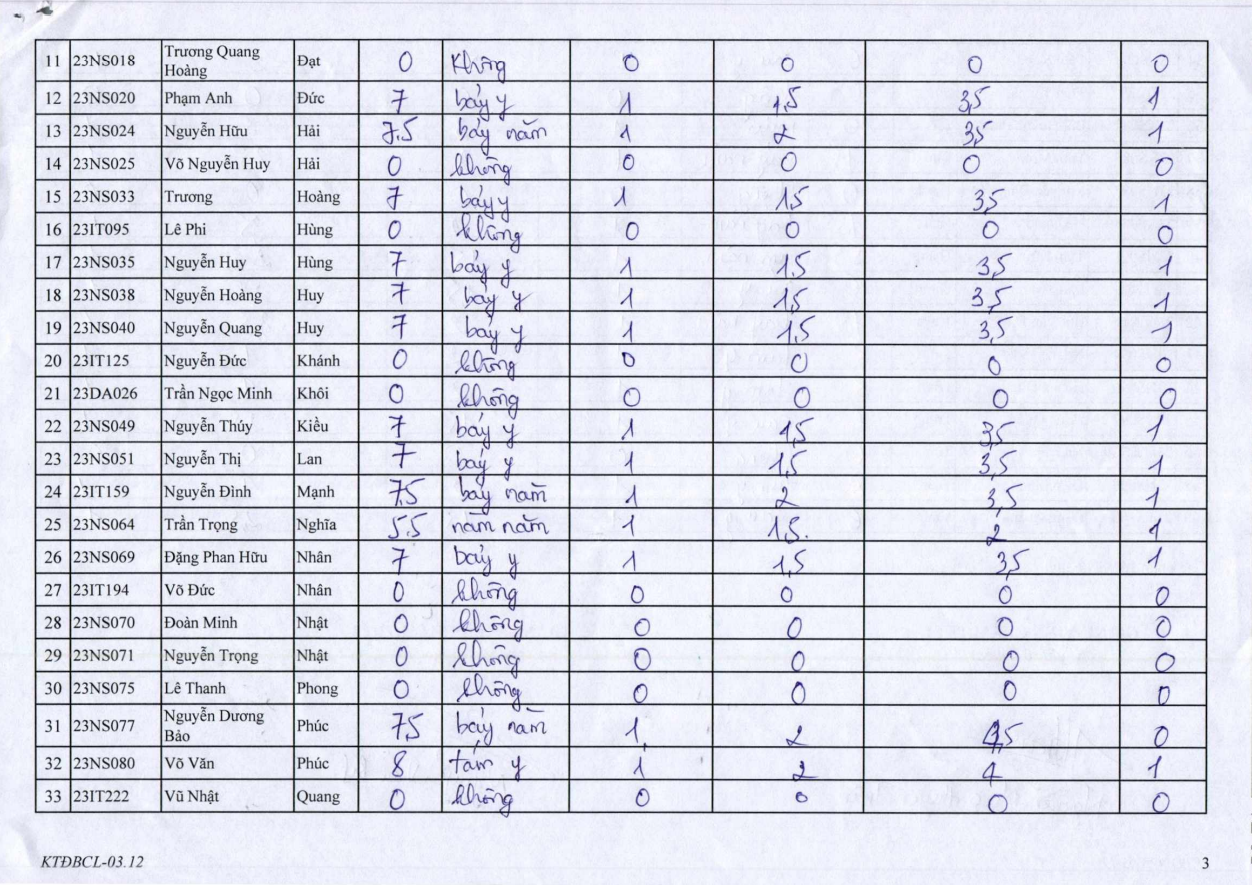 11 23NS018 Trương Quang Hoàng Đạt 0 Không 0 0 0 0
12 23NS020 Phạm Anh Đức 7 bảy y 1 1,5 3,5 1
13 23NS024 Nguyễn Hữu Hải 7.5 bảy năm 1 2 3,5 1
14 23NS025 Võ Nguyễn Huy Hải 0 không 0 0 0 0
15 23NS033 Trương Hoàng 7 bảy y 1 1,5 3,5 1
16 23IT095 Lê Phi Hùng 0 không 0 0 0 0
17 23NS035 Nguyễn Huy Hùng 7 bảy y 1 1,5 3,5 1
18 23NS038 Nguyễn Hoàng Huy 7 bảy y 1 1,5 3,5 1
19 23NS040 Nguyễn Quang Huy 7 bảy y 1 1,5 3,5 1
20 23IT125 Nguyễn Đức Khánh 0 không 0 0 0 0
21 23DA026 Trần Ngọc Minh Khôi 0 không 0 0 0 0
22 23NS049 Nguyễn Thúy Kiều 7 bảy y 1 1,5 3,5 1
23 23NS051 Nguyễn Thị Lan 7 bảy y 1 1,5 3,5 1
24 23IT159 Nguyễn Đình Mạnh 7,5 bảy năm 1 2 3,5 1
25 23NS064 Trần Trọng Nghĩa 5.5 năm năm 1 1,5. 2 1
26 23NS069 Đặng Phan Hữu Nhân 7 bảy y 1 1,5 3,5 1
27 23IT194 Võ Đức Nhân 0 không 0 0 0 0
28 23NS070 Đoàn Minh Nhật 0 không 0 0 0 0
29 23NS071 Nguyễn Trọng Nhật 0 không 0 0 0 0
30 23NS075 Lê Thanh Phong 0 không 0 0 0 0
31 23NS077 Nguyễn Dương Bảo Phúc 7,5 bảy năm 1 2 4,5 0
32 23NS080 Võ Văn Phúc 8 tám y 1 2 4 1
33 23IT222 Vũ Nhật Quang 0 không 0 0 0 0
KTĐBCL-03.12 3